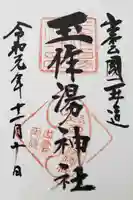 出雲國玉造
玉作湯神社
令和元年十一月十日